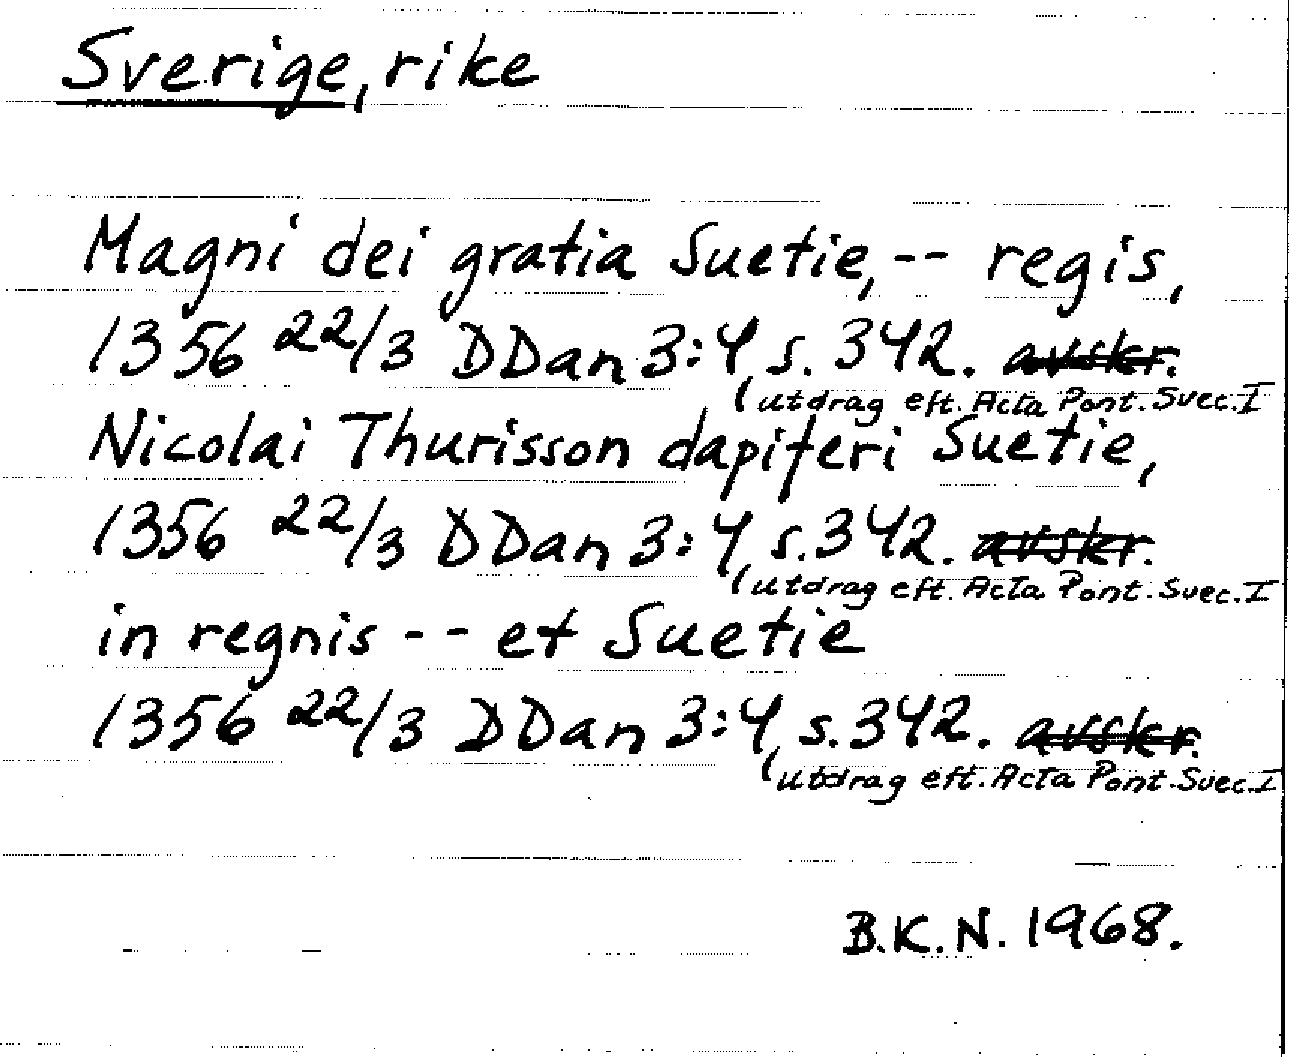 Sverige, rike
Magni dei gratia Suetie, -- regis,
1356 22/3 DDan 3:4, s. 342. avskr.
(utdrag eft. Acta Pont. Svec. I
Nicolai Thurisson dapiferi Suetie,
1356 22/3 DDan 3:4, s. 342. avskr.
(utdrag eft. Acta Pont. Svec. I
in regnis -- et Suetie
1356 22/3 DDan 3:4, s. 342. avskr.
(utdrag eft. Acta Pont. Svec. I
B.K.N. 1968.